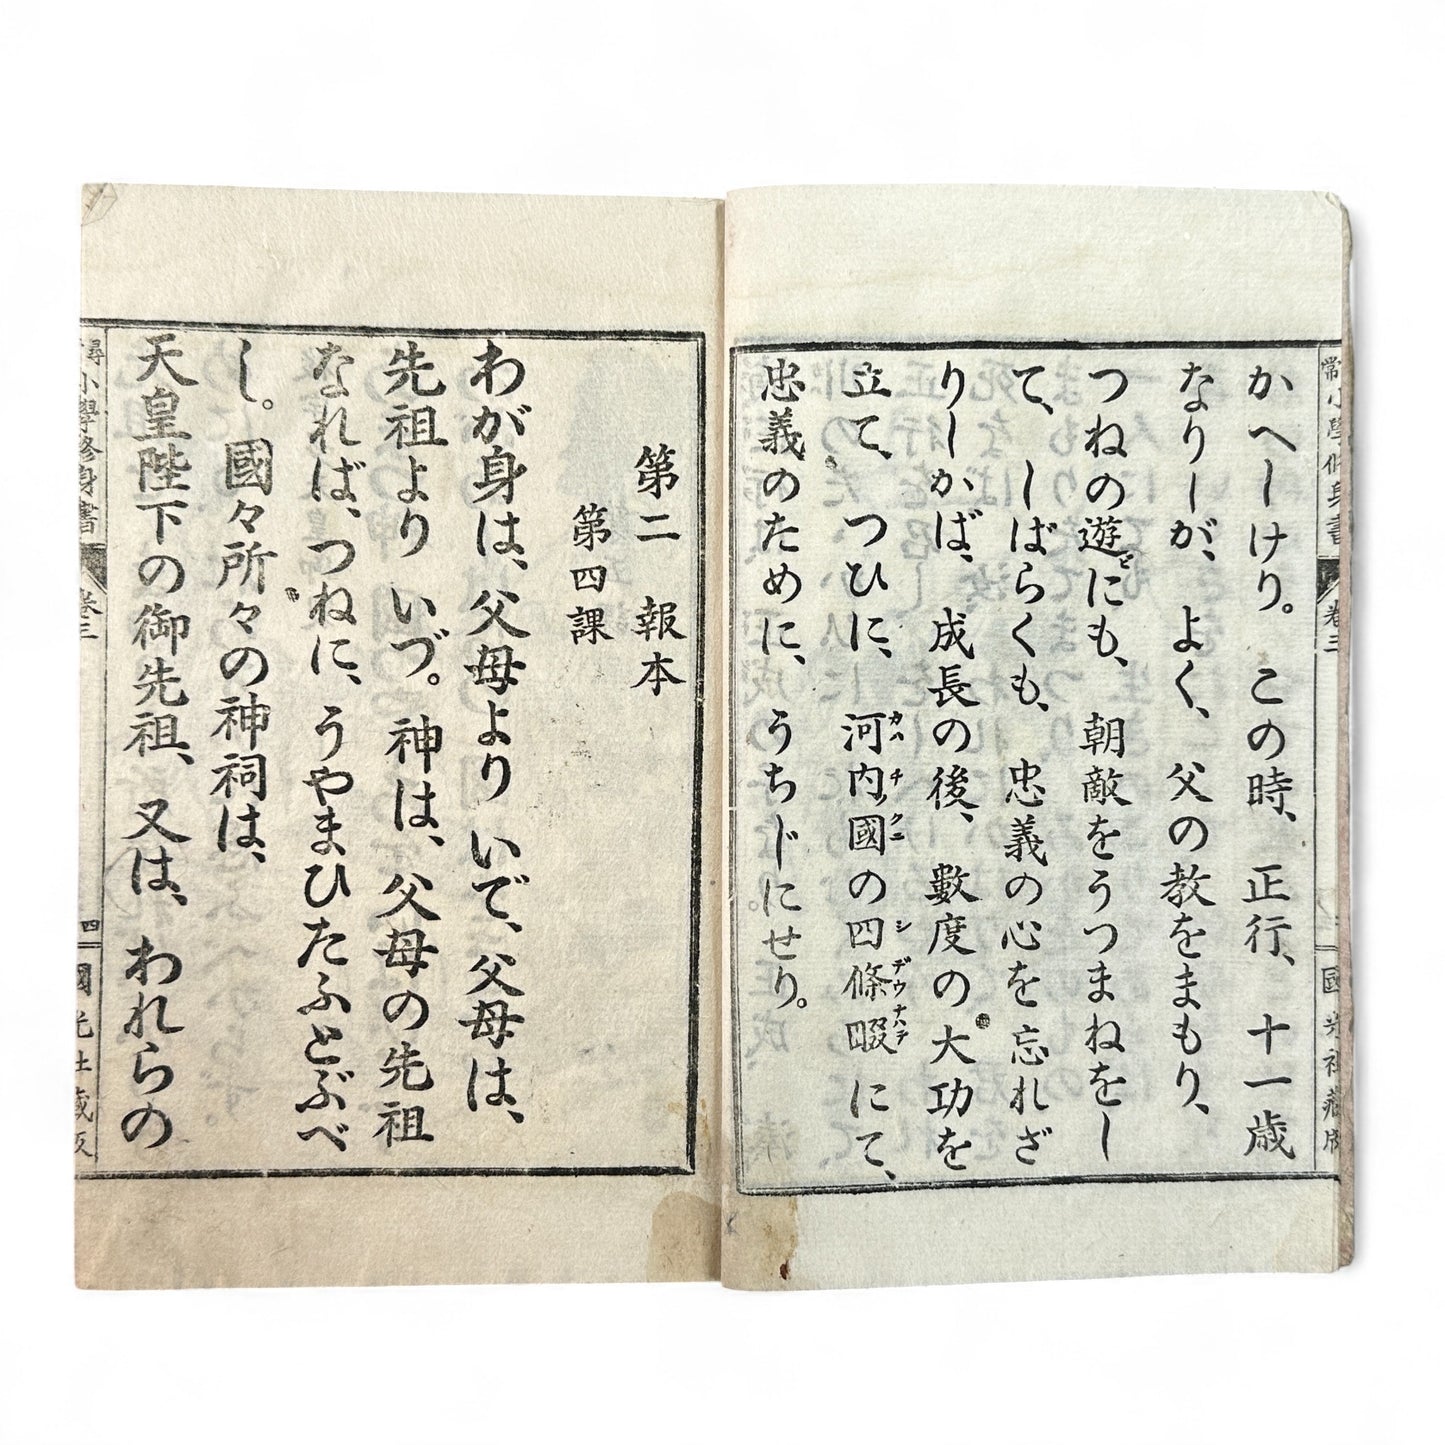 かへしけり。この時、正行、十一歳
なりしが、よく、父の教をまもり、
つねの遊にも、朝敵をうつまねをし
て、しばらくも、忠義の心を忘れざ
りしかば、成長の後、數度の大功を
立て、つひに、河内國の四條畷にて、
カハチノクニ
シデウナハテ
忠義のために、うちじにせり。
第二 報本
第四課
わが身は、父母よりいで、父母は、
先祖よりいづ。神は、父母の先祖
なれば、つねに、うやまひたふとぶべ
し。國々所々の神祠は、
天皇陛下の御先祖、又は、われらの
常小學修身書 卷三 國光社藏版
尋 小學修身書 卷三 四 國光社藏版